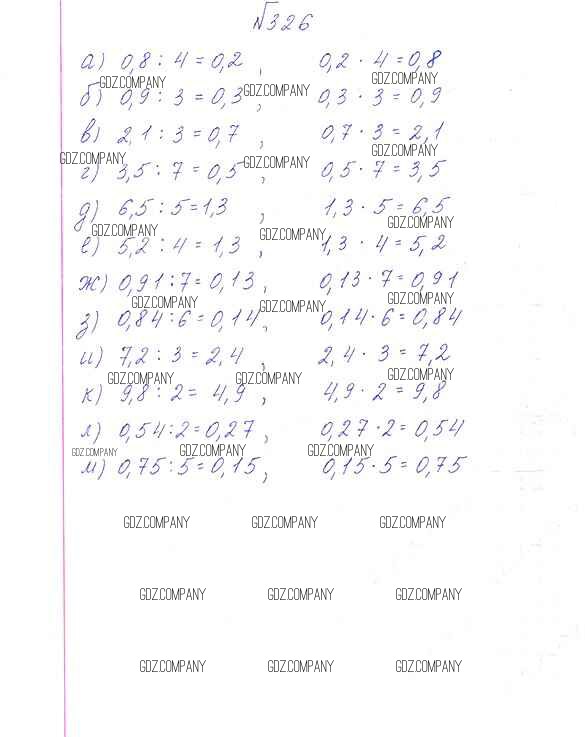 №326
а) 0,8 : 4 = 0,2 , 0,2 · 4 = 0,8
GDZ.COMPANY GDZ.COMPANY
б) 0,9 : 3 = 0,3 , 0,3 · 3 = 0,9
GDZ.COMPANY
в) 2,1 : 3 = 0,7 , 0,7 · 3 = 2,1
GDZ.COMPANY GDZ.COMPANY GDZ.COMPANY
г) 3,5 : 7 = 0,5 , 0,5 · 7 = 3,5
д) 6,5 : 5 = 1,3 , 1,3 · 5 = 6,5
GDZ.COMPANY GDZ.COMPANY GDZ.COMPANY
е) 5,2 : 4 = 1,3 , 1,3 · 4 = 5,2
ж) 0,91 : 7 = 0,13 , 0,13 · 7 = 0,91
GDZ.COMPANY GDZ.COMPANY GDZ.COMPANY
з) 0,84 : 6 = 0,14 , 0,14 · 6 = 0,84
и) 7,2 : 3 = 2,4 , 2,4 · 3 = 7,2
GDZ.COMPANY GDZ.COMPANY GDZ.COMPANY
к) 9,8 : 2 = 4,9 , 4,9 · 2 = 9,8
л) 0,54 : 2 = 0,27 , 0,27 · 2 = 0,54
GDZ.COMPANY GDZ.COMPANY GDZ.COMPANY
м) 0,75 : 5 = 0,15 , 0,15 · 5 = 0,75
GDZ.COMPANY GDZ.COMPANY GDZ.COMPANY
GDZ.COMPANY GDZ.COMPANY GDZ.COMPANY
GDZ.COMPANY GDZ.COMPANY GDZ.COMPANY